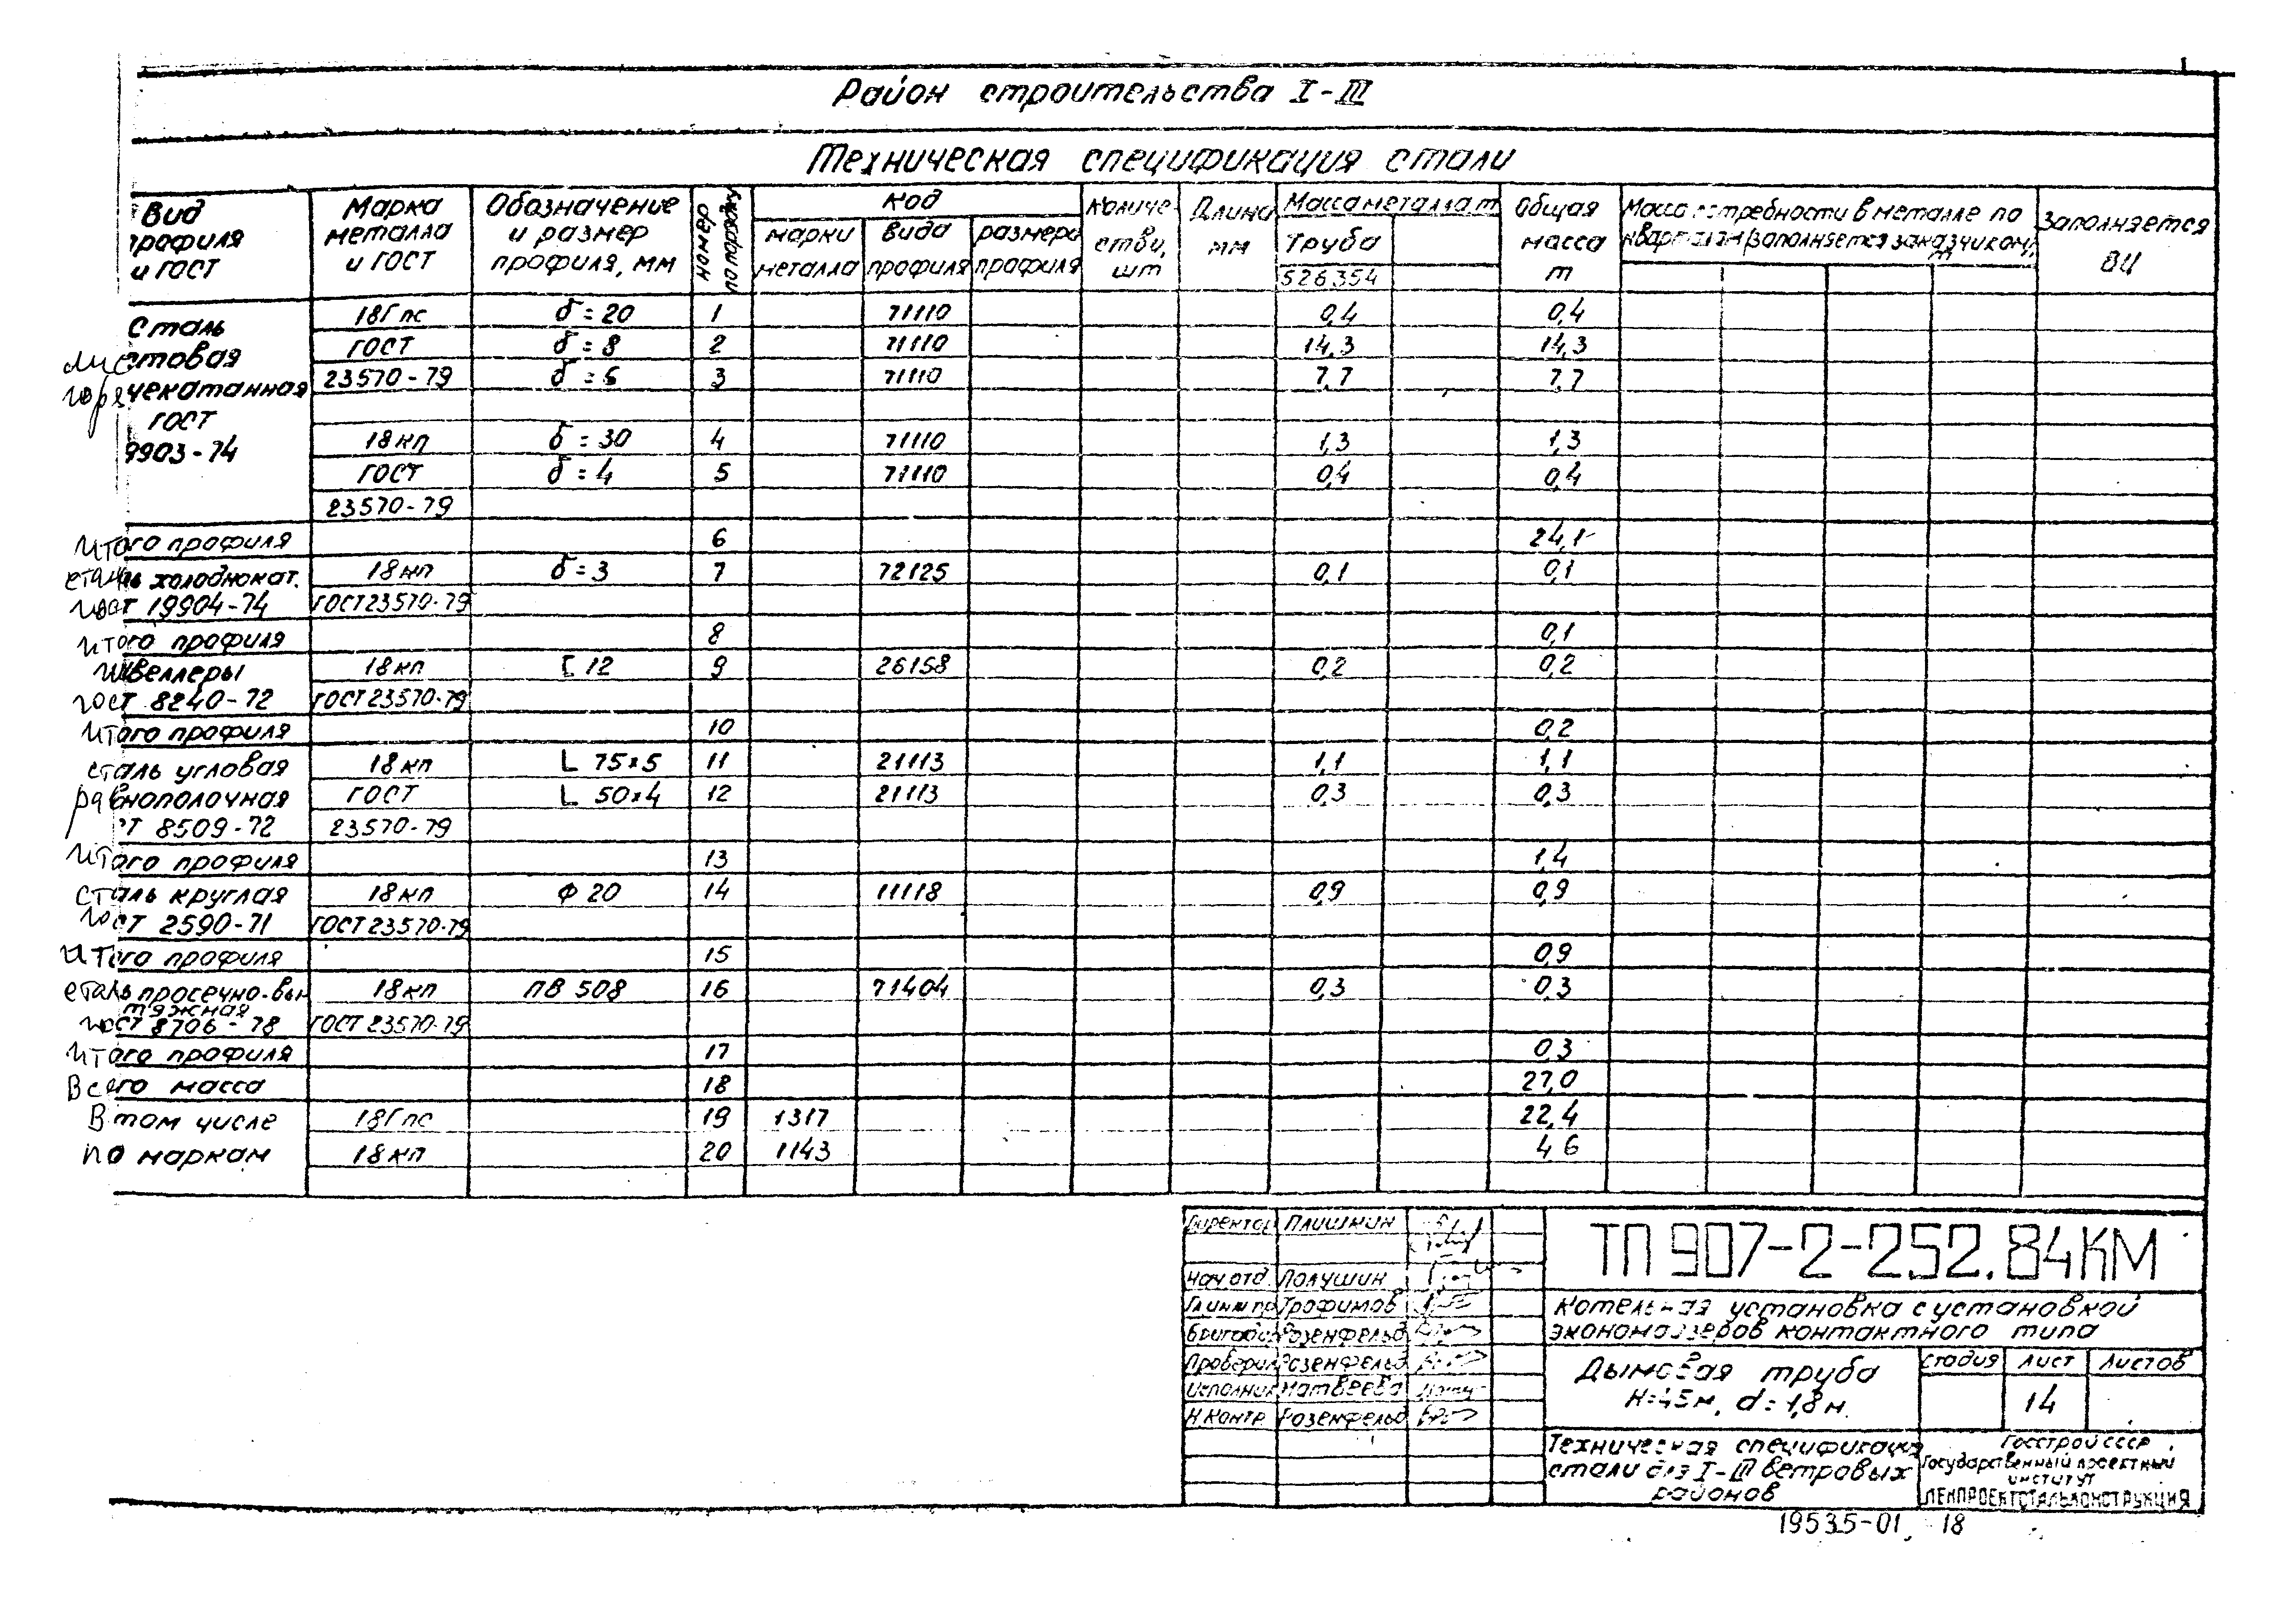 Район строительства I-III
Техническая спецификация стали
Вид профиля и ГОСТ
Марка металла и ГОСТ
Обозначение и размер профиля, мм
Номер по порядку
Код
марки металла
вида профиля
размера профиля
Количество, шт
Длина мм
Масса металла т
Труба
526354
Общая масса т
Масса потребности в металле по кварталам (заполняется заказчиком)
Заполняется ВЦ
Сталь листовая горячекатанная ГОСТ 19903-74
18Гпс δ=20 1 71110 0,4 0,4
ГОСТ δ=8 2 71110 14,3 14,3
23570-79 δ=6 3 71110 7,7 7,7
18кп δ=30 4 71110 1,3 1,3
ГОСТ δ=4 5 71110 0,4 0,4
23570-79
Итого профиля 6 24,1
сталь холоднокат. 18кп δ=3 7 72125 0,1 0,1
гост 19904-74 ГОСТ 23570-79
Итого профиля 8 0,1
Швеллеры 18кп [ 12 9 26158 0,2 0,2
гост 8240-72 ГОСТ 23570-79
Итого профиля 10 0,2
сталь угловая 18кп L 75x5 11 21113 1,1 1,1
равнополочная ГОСТ L 50x4 12 21113 0,3 0,3
ст 8509-72 23570-79
Итого профиля 13 1,4
сталь круглая 18кп Ф 20 14 11118 0,9 0,9
гост 2590-71 ГОСТ 23570-79
Итого профиля 15 0,9
сталь просечно-вы 18кп ПВ 508 16 71404 0,3 0,3
тяжная
гост 8706-78 ГОСТ 23570-79
Итого профиля 17 0,3
Всего масса 18 27,0
В том числе 18Гпс 19 1317 22,4
по маркам 18кп 20 1143 4,6
Директор Плишкин
Нач отд. Полушин
Гл инж пр Трофимов
Бригадир Розенфельд
Проверил Розенфельд
Исполнил Матвеева
Н.контр. Розенфельд
ТП 907-2-252.84КМ
Котельная установка с установкой
экономайзеров контактного типа
Дымовая труба
H=45м, d=1,8м.
стадия лист листов
14
Техническая спецификация
стали для I-III ветровых
районов
Госстрой СССР
Государственный проектный
институт
ЛЕНПРОЕКТСТАЛЬКОНСТРУКЦИЯ
19535-01 18